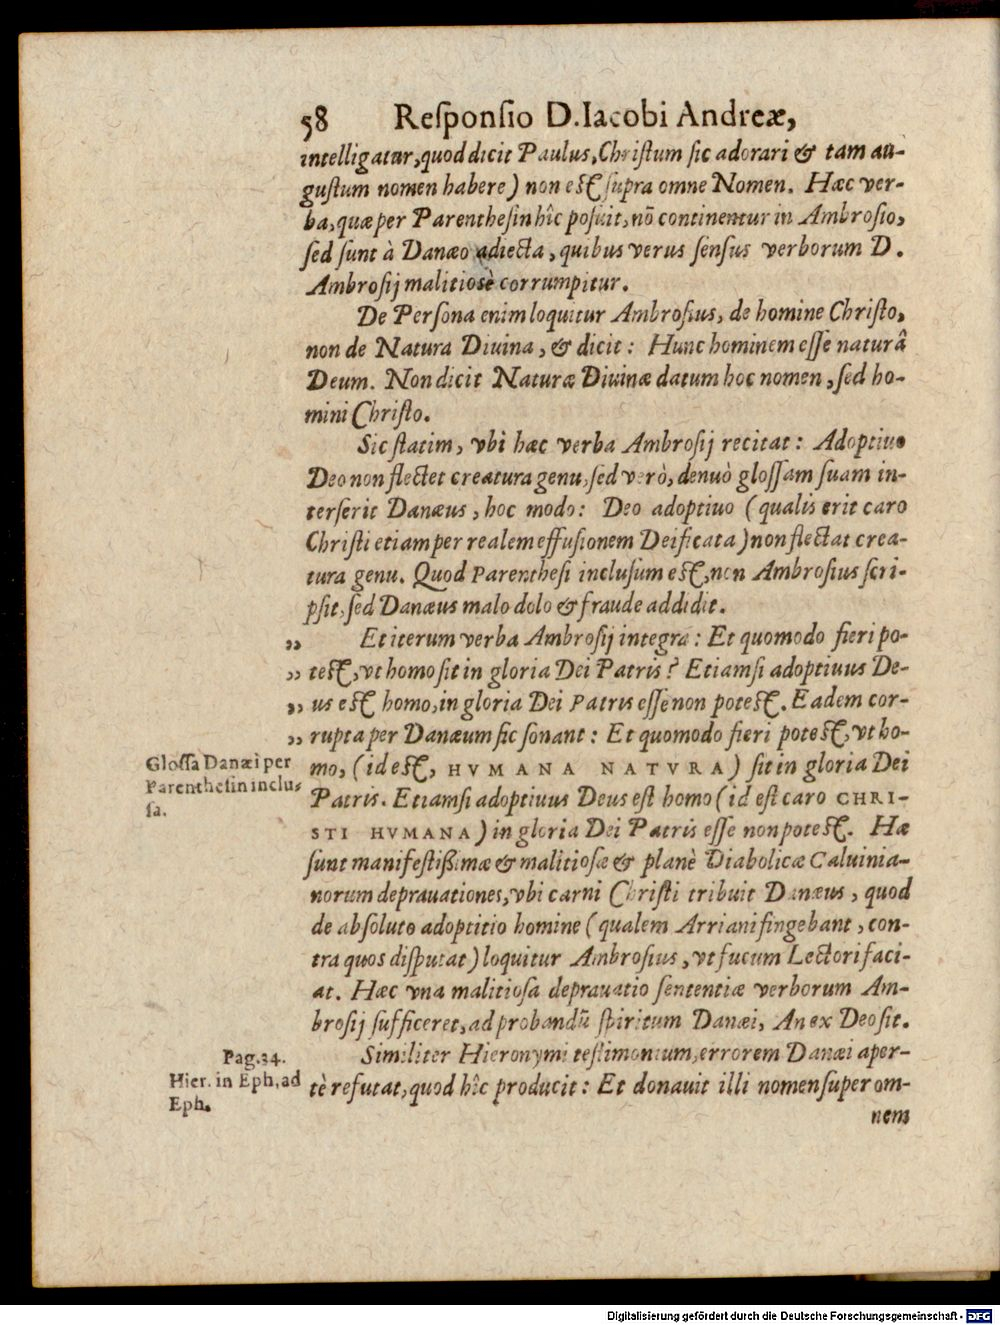 58 Reſponſio D. Iacobi Andreæ,
intelligatur, quod dicit Paulus, Chriſtum ſic adorari & tam au-
guſtum nomen habere) non eſt ſupra omne Nomen. Hæc ver-
ba, quæ per Parentheſin hîc poſuit, nō continentur in Ambroſio,
ſed ſunt à Danæo adiecta, quibus verus ſenſus verborum D.
Ambroſij malitiosè corrumpitur.
De Perſona enim loquitur Ambroſius, de homine Chriſto,
non de Natura Diuina, & dicit: Hunc hominem eſſe naturâ
Deum. Non dicit Naturæ Diuinæ datum hoc nomen, ſed ho-
mini Chriſto.
Sic ſtatim, vbi hæc verba Ambroſij recitat: Adoptiuo
Deo non flectet creatura genu, ſed verò, denuò gloſſam ſuam in-
terſerit Danæus, hoc modo: Deo adoptiuo (qualis erit caro
Chriſti etiam per realem effuſionem Deificata) non flectat crea-
tura genu. Quod Parentheſi incluſum eſt, non Ambroſius ſcri-
pſit, ſed Danæus malo dolo & fraude addidit.
„ Et iterum verba Ambroſij integra: Et quomodo fieri po-
„ teſt, vt homo ſit in gloria Dei Patris? Etiamſi adoptiuus De-
„ us eſt homo, in gloria Dei Patris eſſe non poteſt. Eadem cor-
„ rupta per Danæum ſic ſonant: Et quomodo fieri poteſt, vt ho-
Gloſſa Danæi per
Parentheſin inclu-
ſa.
mo, (id eſt, HVMANA NATVRA) ſit in gloria Dei
Patris. Etiamſi adoptiuus Deus eſt homo (id eſt caro CHRI-
STI HVMANA) in gloria Dei Patris eſſe non poteſt. Hæ
ſunt manifeſtißimæ & malitioſæ & planè Diabolicæ Caluinia-
norum deprauationes, vbi carni Chriſti tribuit Danæus, quod
de abſoluto adoptitio homine (qualem Arriani fingebant, con-
tra quos diſputat) loquitur Ambroſius, vt fucum Lectori faci-
at. Hæc vna malitioſa deprauatio ſententiæ verborum Am-
broſij ſufficeret, ad probandū ſpiritum Danæi, An ex Deo ſit.
Pag. 34.
Hier. in Eph, ad
Eph.
Similiter Hieronymi teſtimonium, errorem Danæi aper-
tè refutat, quod hîc producit: Et donauit illi nomen ſuper om-
nem
Digitalisierung gefördert durch die Deutsche Forschungsgemeinschaft - DFG